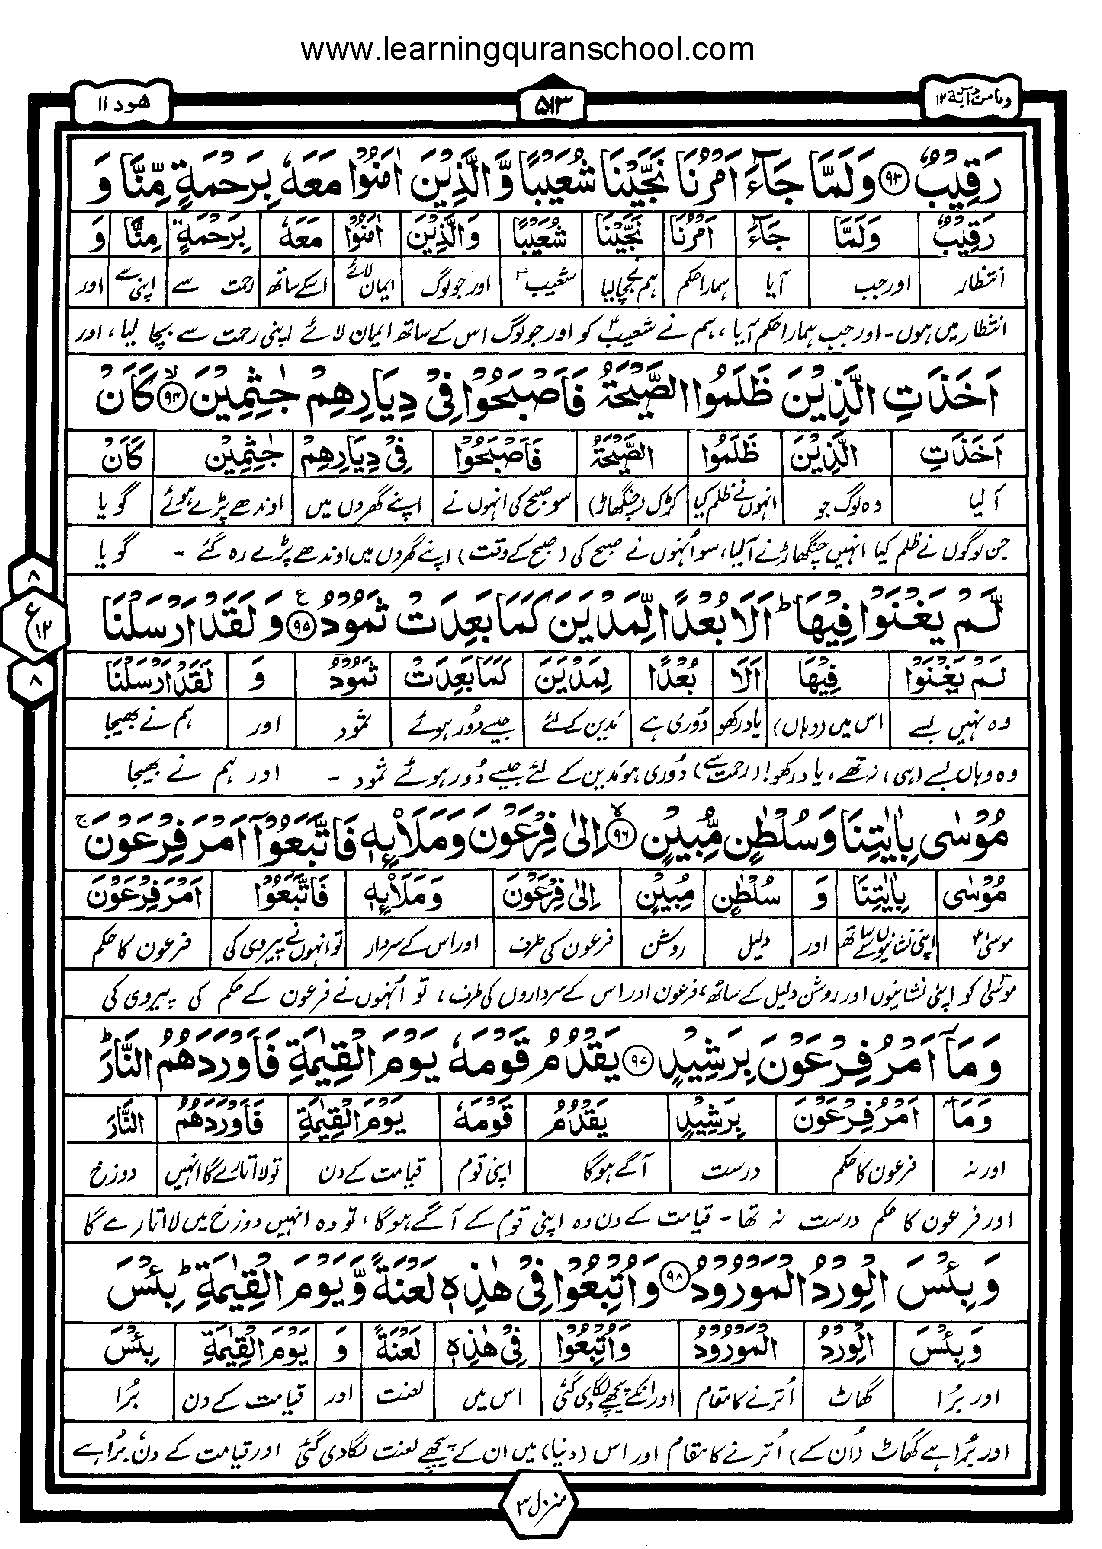 www.learningquranschool.com
وما من دآبة ۱۲
۵۱۳
هود ۱۱
رَقِيْبٌ ۹۳ وَلَمَّا جَآءَ اَمْرُنَا نَجَّيْنَا شُعَيْبًا وَّالَّذِيْنَ اٰمَنُوْا مَعَهٗ بِرَحْمَةٍ مِّنَّا وَ
رَقِيْبٌ وَلَمَّا جَآءَ اَمْرُنَا نَجَّيْنَا شُعَيْبًا وَالَّذِيْنَ اٰمَنُوْا مَعَهٗ بِرَحْمَةٍ مِنَّا وَ
انتظار اور جب آیا ہمارا حکم ہم نے بچا لیا شعیبؑ اور جو لوگ ایمان لائے اسکے ساتھ رحمت سے اپنی سے اور
انتظار میں ہوں۔ اور جب ہمارا حکم آیا، ہم نے شعیبؑ کو اور جو لوگ اس کے ساتھ ایمان لائے اپنی رحمت سے بچا لیا، اور
اَخَذَتِ الَّذِيْنَ ظَلَمُوا الصَّيْحَةُ فَاَصْبَحُوْا فِيْ دِيَارِهِمْ جٰثِمِيْنَ ۙ۹۴ كَاَنْ
اَخَذَتِ الَّذِيْنَ ظَلَمُوا الصَّيْحَةُ فَاَصْبَحُوْا فِيْ دِيَارِهِمْ جٰثِمِيْنَ كَاَنْ
آ لیا وہ لوگ جو انہوں نے ظلم کیا کڑک (چنگھاڑ) سو صبح کی انہوں نے اپنے گھروں میں اوندھے پڑے ہوئے گویا
جن لوگوں نے ظلم کیا انہیں چنگھاڑ نے آ لیا، سو اُنہوں نے صبح کی (صبح کے وقت) اپنے گھروں میں اوندھے پڑے رہ گئے - گویا
لَّمْ يَغْنَوْا فِيْهَا ؕ اَلَا بُعْدًا لِّمَدْيَنَ كَمَا بَعِدَتْ ثَمُوْدُ ۹۵ۧ وَلَقَدْ اَرْسَلْنَا
لَمْ يَغْنَوْا فِيْهَا اَلَا بُعْدًا لِمَدْيَنَ كَمَا بَعِدَتْ ثَمُوْدُ وَ لَقَدْ اَرْسَلْنَا
وہ نہیں بسے اس میں (وہاں) یاد رکھو دُوری ہے مَدین کے لئے جیسے دُور ہوئے ثمود اور ہم نے بھیجا
وہ وہاں بسے (ہی) نہ تھے، یاد رکھو! (رحمت سے) دُوری ہو مَدین کے لئے جیسے دُور ہوئے ثمود - اور ہم نے بھیجا
۸
ع
۱۲
۸
مُوْسٰى بِاٰيٰتِنَا وَسُلْطٰنٍ مُّبِيْنٍ ۙ۹۶ اِلٰى فِرْعَوْنَ وَمَلَاۡئِهٖ فَاتَّبَعُوْۤا اَمْرَ فِرْعَوْنَ ۚ
مُوْسٰى بِاٰيٰتِنَا وَ سُلْطٰنٍ مُبِيْنٍ اِلٰى فِرْعَوْنَ وَمَلَاۡئِهٖ فَاتَّبَعُوْا اَمْرَ فِرْعَوْنَ
موسیٰؑ اپنی نشانیوں کے ساتھ اور دلیل روشن فرعون کی طرف اور اس کے سردار تو انہوں نے پیروی کی فرعون کا حکم
موسٰی کو اپنی نشانیوں اور روشن دلیل کے ساتھ، فرعون اور اس کے سرداروں کی طرف، تو اُنہوں نے فرعون کے حکم کی پیروی کی
وَمَاۤ اَمْرُ فِرْعَوْنَ بِرَشِيْدٍ ۹۷ يَقْدُمُ قَوْمَهٗ يَوْمَ الْقِيٰمَةِ فَاَوْرَدَهُمُ النَّارَ ؕ
وَمَاۤ اَمْرُ فِرْعَوْنَ بِرَشِيْدٍ يَقْدُمُ قَوْمَهٗ يَوْمَ الْقِيٰمَةِ فَاَوْرَدَهُمُ النَّارَ
اور نہ فرعون کا حکم درست آگے ہوگا اپنی قوم قیامت کے دن تو لا اتارے گا انہیں دوزخ
اور فرعون کا حکم درست نہ تھا - قیامت کے دن وہ اپنی قوم کے آگے ہوگا، تو وہ انہیں دوزخ میں لا اتارے گا
وَبِئْسَ الْوِرْدُ الْمَوْرُوْدُ ۹۸ وَاُتْبِعُوْا فِيْ هٰذِهٖ لَعْنَةً وَّيَوْمَ الْقِيٰمَةِ ؕ بِئْسَ
وَبِئْسَ الْوِرْدُ الْمَوْرُوْدُ وَاُتْبِعُوْا فِيْ هٰذِهٖ لَعْنَةً وَ يَوْمَ الْقِيٰمَةِ بِئْسَ
اور بُرا گھاٹ اُترنے کا مقام اور انکے پیچھے لگا دی گئی اس میں لعنت اور قیامت کے دن بُرا
اور بُرا ہے گھاٹ (اُن کے) اُترنے کا مقام اور اس (دنیا) میں ان کے پیچھے لعنت لگا دی گئی اور قیامت کے دن بُرا ہے
منزل ۳